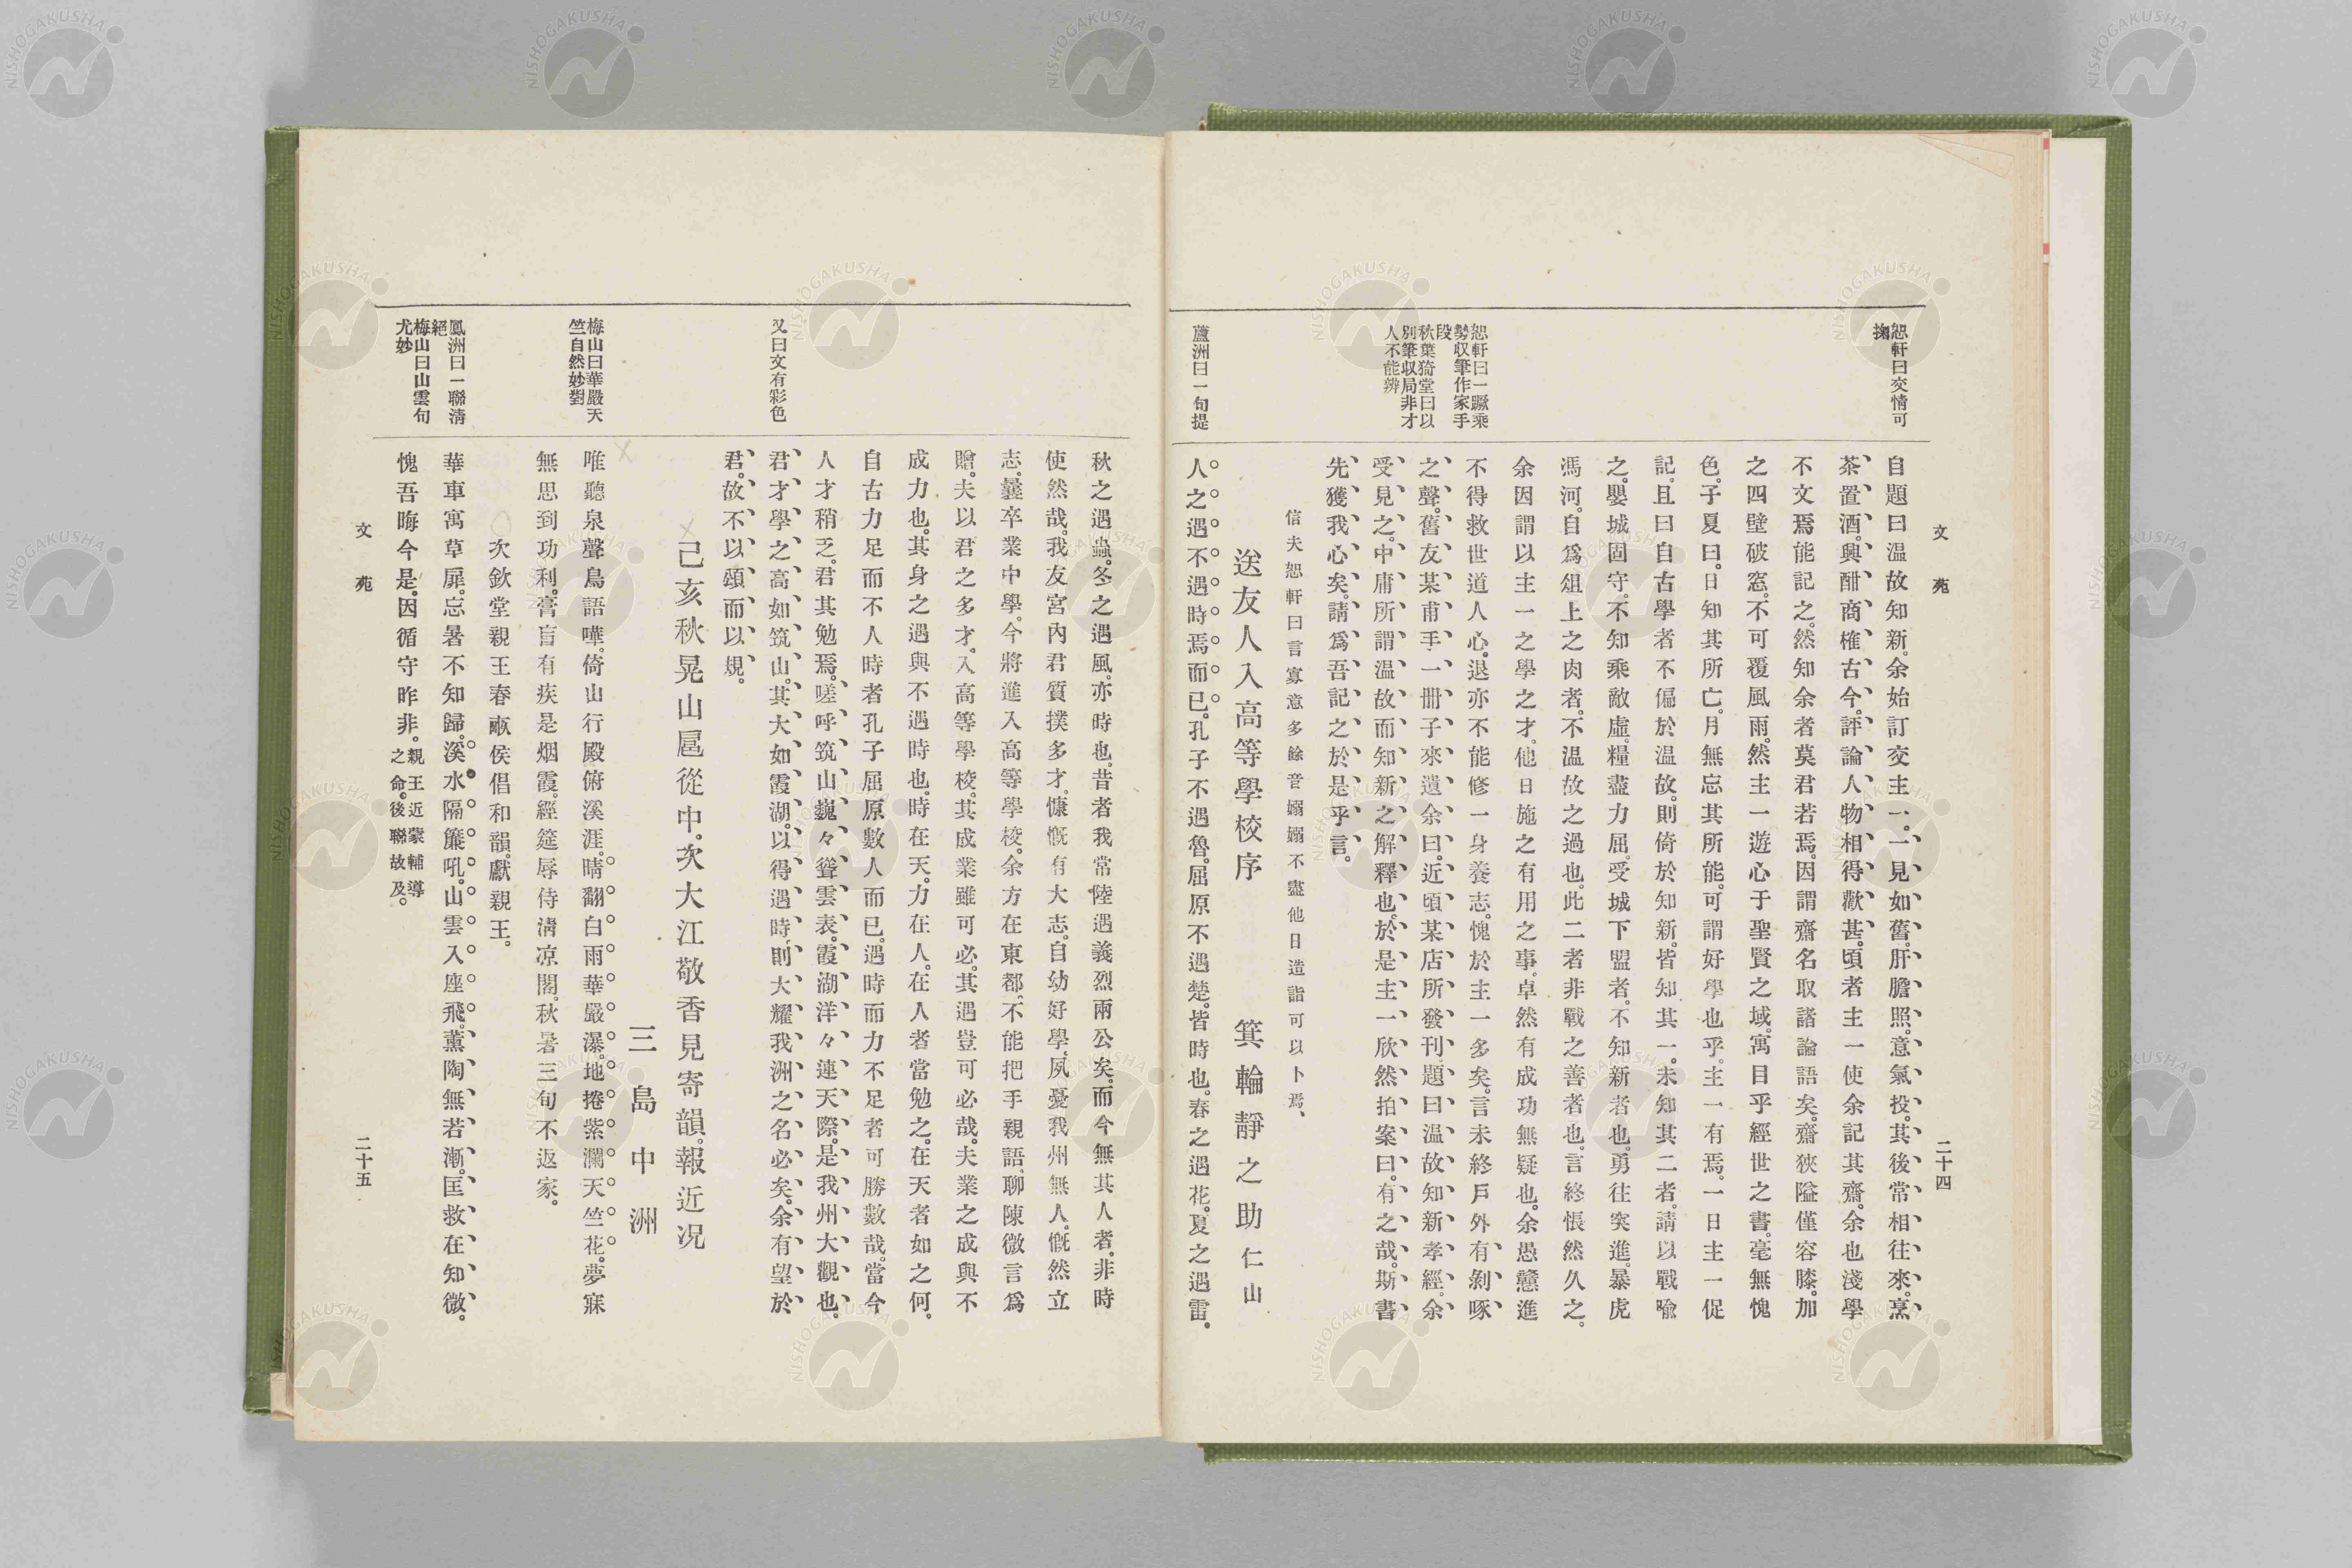 文苑
二十四
恕軒曰交情可
掬
自題曰温故知新。余始訂交主一。一見如舊。肝膽照。意氣投。其後常相往來。烹
茶置酒。興酣商榷古今。評論人物相得歡甚。頃者主一使余記其齋。余也淺學
不文焉能記之。然知余者莫君若焉。因謂齋名取諸論語矣。齋狹隘僅容膝。加
之四壁破窓。不可覆風雨。然主一遊心于聖賢之域。寓目乎經世之書。毫無愧
色。子夏曰。日知其所亡。月無忘其所能。可謂好學也乎。主一有焉。一日主一促
記。且曰自古學者不偏於温故。則倚於知新。皆知其一。未知其二者。請以戰喩
之。嬰城固守。不知乘敵虛。糧盡力屈。受城下盟者。不知新者也。勇往突進。暴虎
馮河。自爲俎上之肉者。不温故之過也。此二者非戰之善者也。言終悵然久之。
余因謂以主一之學之才。他日施之有用之事。卓然有成功無疑也。余愚戇進
不得救世道人心。退亦不能修一身養志。愧於主一多矣。言未終戶外有剝啄
之聲。舊友某甫手一冊子來遺余曰。近頃某店所發刊。題曰温故知新孝經。余
受見之。中庸所謂温故而知新之解釋也。於是主一欣然拍案曰。有之哉。斯書
先獲我心矣。請爲吾記之於是乎言。
恕軒曰一蹶乘
勢収筆作家手
段
秋葉猗堂曰以
別筆収局非才
人不能辨
信夫恕軒曰言寡意多餘音嫋嫋不盡他日造詣可以卜焉、
送友人入高等學校序　箕輪靜之助仁山
蘆洲曰一句提
人之遇不遇時焉而已。孔子不遇魯。屈原不遇楚。皆時也。春之遇花。夏之遇雷。
秋之遇蟲。冬之遇風。亦時也。昔者我常陸遇義烈兩公矣。而今無其人者。非時
使然哉。我友宮內君質撲多才。慷慨有大志。自幼好學。夙憂我州無人。慨然立
志。曩卒業中學。今將進入高等學校。余方在東都。不能把手親語。聊陳微言爲
贈。夫以君之多才。入高等學校。其成業雖可必。其遇豈可必哉。夫業之成與不
成力也。其身之遇與不遇時也。時在天。力在人。在人者當勉之。在天者如之何。
自古力足而不人時者孔子屈原數人而已。遇時而力不足者可勝數哉。當今
人才稍乏。君其勉焉。嗟呼筑山巍々聳雲表。霞湖洋々連天際。是我州大觀也。
又曰文有彩色
君才學之高如筑山。其大如霞湖。以得遇時。則大耀我洲之名必矣。余有望於
君。故不以頌而以規。
己亥秋晃山扈從中。次大江敬香見寄韻。報近況
三島中洲
梅山曰華嚴天
竺自然妙對
唯聽泉聲鳥語嘩。倚山行殿俯溪涯。晴翻白雨華嚴瀑。地捲紫瀾天竺花。夢寐
無思到功利。膏盲有疾是烟霞。經筵辱侍淸凉閣。秋暑三旬不返家。
次欽堂親王春畝侯倡和韻。獻親王。
鳳洲曰一聯淸
絕
梅山曰山雲句
尤妙
華車寓草扉。忘暑不知歸。溪水隔簾吼。山雲入座飛。薰陶無若漸。匡救在知微。
愧吾晦今是。因循守昨非。親王近蒙輔導
之命。後聯故及。
文苑
二十五